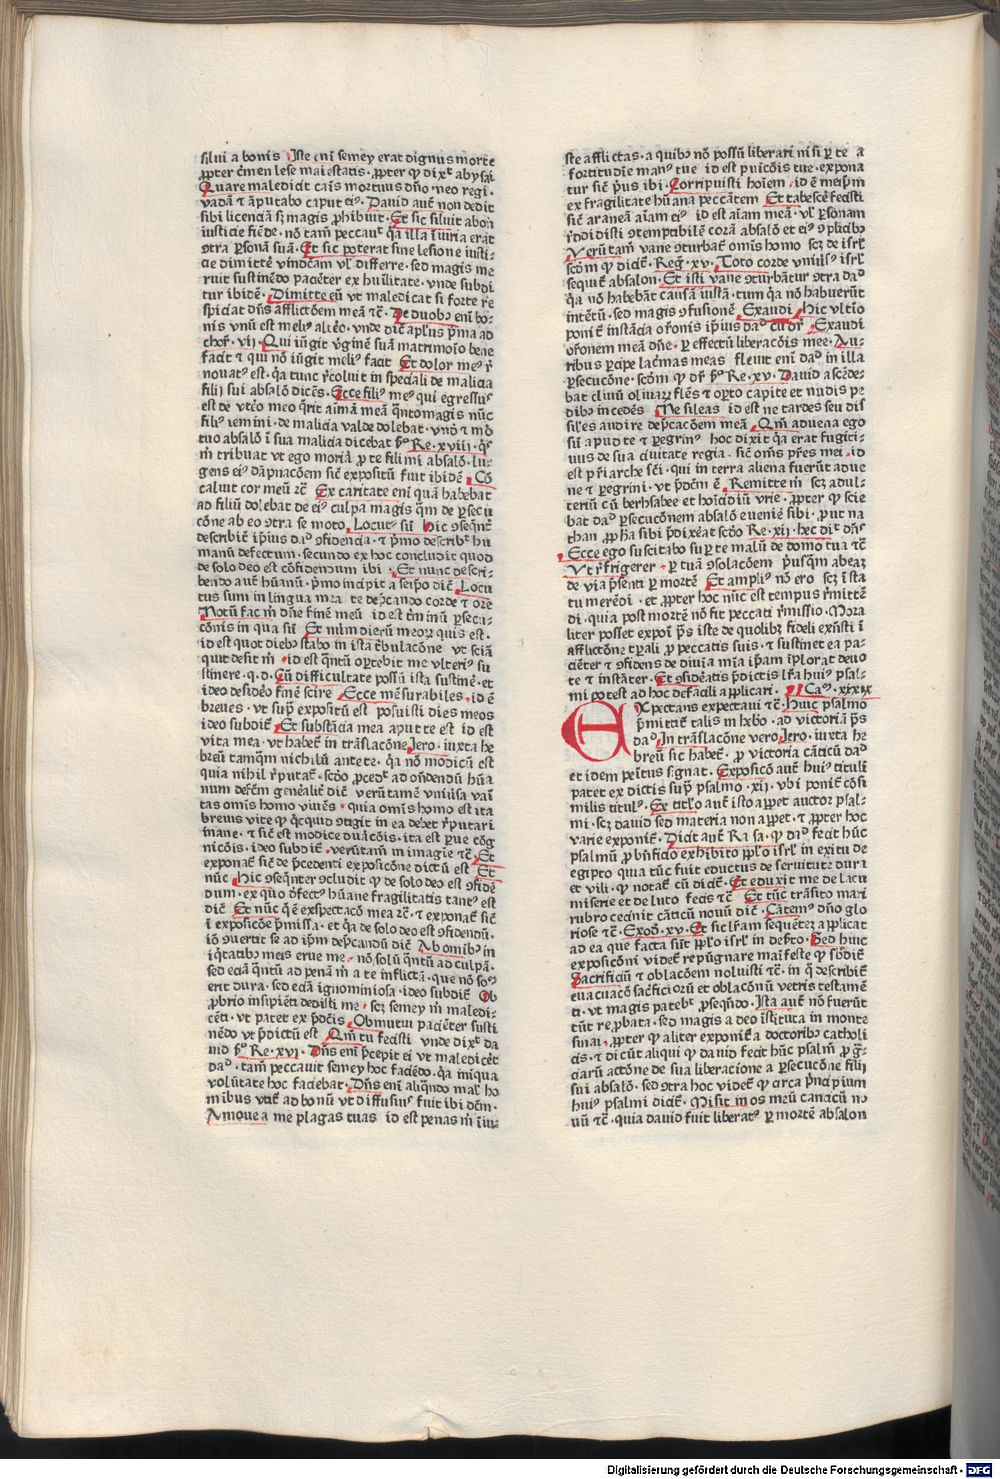 silui a bonis Iste eni semey erat dignus morte
ꝓpter cˀmen lese maiestatis · ꝓpter qꝫ dixͭ abysai
Quare maledicit canis mortuus dño meo regi ·
vadã ⁊ ãputabo caput eiꝰ · Dauid autẽ non dedit
sibi licenciã sꝫ magis ꝓhibuit · Et sic siluit a bon
iusticie fiẽde · nõ tam̃ peccauͭ qꝛ illa iniuria erat
ꝯtra ꝑsonã suã · Et sic poterat sine lesione iusti-
cie dimittẽ vindcãm vĺ differre · sed magis me
ruit sustinẽdo paciẽter ex huĩlitate · vnde subdi
tur ibidẽ · Dimitte eũ vt maledicat si forte re
spiciat dñs afflictõem meã ⁊c̃ · De duobꝰ eni bo-
nis vnũ est meliꝰ altẽo · vnde dic̃ apl̃us p̃ma ad
choꝝ · vij · Qui iũgit v̓ginẽ suã matrimoĩo bene
facit ⁊ qui nõ iũgit meliꝰ facit Et dolor meꝰ r̃
nouatꝰ est · qꝛ tunc r̃coluit in speciali de malicia
filij sui absalõ dicẽs · Ecce filiꝰ meꝰ qui egressuˢ
est de vtẽo meo q̃rit aĩmã meã q̃ntomagis nũc
filiꝰ iemini · de malicia valde dolebat · vnõ ⁊ mõ
tuo absalõ ĩ sua malicia dicebat pͦ Re · xviii · qͥs
m̃ tribuat vt ego moriã ꝓ te fili mi absalõ · lu-
gens eiꝰ dãpnacõem sic̃ expositũ fuit ibidẽ · Cõ
caluit cor meũ ⁊c̃ Ex caritate eni quã habebat
ad filiũ dolebat de eiꝰ culpa magis qm̃ de ꝑsecu
cõne ab eo ꝯtra se moto · Locutꝰ sũ Hic ꝯseqñt̃
describit̃ ip̃ius dad̃ ꝯfidencia · ⁊ p̃mo describit̃ hu
manũ defectum · secundo ex hoc concludit quod
de solo deo est cõfidendum ibi · Et nunc descri-
bendo autẽ hũanũ · p̃mo incipit a seip̃o dicẽs Locu
tus sum in lingua mea te dep̃cando corde ⁊ ore
Notũ fac m̃ dñe finẽ meũ id est t̃minũ ꝑsecu-
cõnis in qua sũ Et nũm dierũ meoꝝ quis est ·
id est quot diebꝰ stabo in ista tˀbulacõne vt sciã
quit desit m̃ · id est q̃ntũ oꝑtebit me vlteriꝰ su
stinere · q · d · Cũ difficultate possũ ista sustinẽ · et
ideo desidẽo finẽ scire Ecce mẽsurabiles · id ẽ
breues · vt supͣ expositũ est posuisti dies meos
ideo subdit̃ · Et substãcia mea aput te est id est
vita mea · vt habet̃ in trãslacõne Jero · iuxta he
breũ tamqm̃ nichilũ ante te · qꝛ nõ modicũ est
quia nihil r̃putat̃ · scdõ ꝓcedͭ ad on̄dendũ hũa
num defc̃m genẽalit̃ dic̃ verũtamẽ vniũsa vai
tas omĩs homo viuẽs · quia omĩs homo est ita
breuis vite qꝫ qͥcquid ꝯtigit in ea debet r̃putari
inane · ⁊ sic̃ est modice duãcõis · ita est ꝑue cõg
nicõis · ideo subdit̃ · verũtam̃ in imagie ⁊c̃ · Et
exponat̃ sic̃ de p̃cedenti exposicõne dictũ est Et
nũc · Hic ꝯseqñter ꝯcludit qꝫ de solo deo est ꝯfidẽ
dum · ex quo d̃fectꝰ hũane fragilitatis tantꝰ est
dic̃ Et nũc q̃ ẽ exspectacõ mea ⁊c̃ · ⁊ exponat̃ sic̃
ĩ exposicõe p̃missa · et qꝛ de solo deo est ꝯfidendũ ·
iõ ꝯuertit se ad ip̃m dep̃candũ dic̃ Ab omibꝰ in
iq̃tatibꝰ meis erue me · nõ solũ q̃ntũ ad culpã ·
sed eciã q̃ntũ ad penã m̃ a te inflictã · que nõ soꝰ
erit dura · sed eciã ignominiosa · ideo subdit̃ Ob
ꝓbrio insipiẽti dedisti me · scꝫ semey m̃ maledi-
cẽti · vt patet ex p̃dc̃is Obmutui paciẽter susti
nẽdo vt p̃dictũ est Qm̃ tu fecisti vnde dixͭ da
uid pͦ Re · xvi · Dñs eni p̃cepit ei vt malediceͭt
dad̃ · tam̃ peccauit semey hoc faciẽdo · qꝛ iniqua
volũtate hoc faciebat · Dñs eni aliqñdo malꝰ ho
mibus vtit̃ ad bonũ vt diffusiuꝰ fuit ibi dcm̃ ·
Amoue a me plagas tuas id est penas m̃ iniu-
ste afflictas · a quibꝰ nõ possũ liberari nisi ꝑ te a
fortitudĩe manꝰ tue id est punicõis tue · expona
tur sic̃ p̃us ibi · Corripuisti hoĩem · id ẽ meip̃m
ex fragilitate hũana peccãtem Et tabescẽ fecisti
sic̃ araneã aĩam eiꝰ id est aĩam meã · vĺ ꝑsonam
r̃ddidisti ꝯtemptabilẽ corã absalõ et eiꝰ ꝯplicibꝰ
Verũtam̃ vane ꝯturbat̃ omĩs homo scꝫ de isrl̃
scdm̃ qꝫ dicit̃ · Reg̃ · xv · Toto corde vniũsꝰ isrl̃
sequit̃ absalon · Et isti vane ꝯturbãtur ꝯtra dad̃
qꝛ nõ habebãt causãm iustã · tum qꝛ nõ habuerũt
intẽtũ · sed magis ꝯfusionẽ Exaudi Hic vltĩo
ponit̃ instãcia or̃onis ip̃ius dad̃ cũ dr̃ Exaudi
or̃onem meã dñe · ꝑ effectũ liberacõis mee · Au-
ribus ꝑcipe lac̃mas meas fleuit eni dad̃ in illa
ꝑsecucõne · scdm̃ qꝫ dr̃ pͦ Re · xv · Dauid ascẽde-
bat cliuũ oliuaꝝ flẽs ⁊ oꝑto capite et nudis pe
dibꝰ incedẽs Ne sileas id est ne tardes seu dis
sil̃es audire dep̃cacõem meã Qm̃ aduena ego
sũ apud te ⁊ ꝑegrinꝰ hoc dixit qꝛ erat fugiti-
uus de sua ciuitate regia · sic̃ omĩs pr̃es mei · id
est pr̃iarche sc̃i · qui in terra aliena fuerũt adue
ne ⁊ ꝑegrini · vt p̃dcm̃ ẽ Remitte m̃ scꝫ adul-
teriũ cũ berhsabee et hoĩcidiũ vrie · ꝓpter qꝫ scie
bat dad̃ ꝑsecucõnem absalõ euenĩe sibi · ꝓut na
than ꝓph̃a sibi p̃dixẽat scdõ Re · xij · hec diͭ dñs
Ecce ego suscitabo suꝑ te malũ de domo tua ⁊c̃
Vt r̃frigerer · ꝑ tuã ꝯsolacõem p̃usqm̃ abeaꝫ
de via p̃senti ꝑ mortẽ Et ampliꝰ nõ ero scꝫ ĩ sta
tu merẽdi · et ꝓpter hoc nũc est tempus r̃mittẽ
di · quia post mortẽ nõ fit peccati r̃missio · Mora
liter posset expoĩ p̃s iste de quolibꝫ fideli exñti ĩ
afflictõne tꝑali ꝓ peccatis suis · ⁊ sustinet ea pa-
ciẽter ⁊ ꝯfidens de diuĩa mĩa ip̃am ĩplorat deuo
te ⁊ instãter · Et ꝯsideãtis p̃dictis lr̃a huiꝰ psal-
mi potest ad hoc defacili applicari · Caᵐ · xxxix
EXpectans expectaui ⁊c̃ · Huic psalmo
p̃mittit̃ talis in hebꝰ · ad victoriã p̃s
dad̃ In trãslacõne vero Jero · iuxta he
breũ sic habet̃ · ꝓ victoria cãticũ dad̃
et idem penĩtus signat · Exposicõ autẽ huiꝰ tituli
patet ex dictis supͣ psalmo · xij · vbi ponit̃ cõsi
milis titulꝰ · Ex titl̃o autẽ isto aꝑpet auctor psal-
mi · scꝫ dauid sed materia non apꝑet · ⁊ ꝓpter hoc
varie exponit̃ · Dicit autẽ Ra sa · qꝫ dad̃ fecit hũc
psalmũ ꝓ bñficio exhibito ppl̃o isrl̃ in exitu de
egipto qua tũc fuit eductus de seruitute dura
et vili · qꝫ notat̃ cũ dicit̃ · Et eduxit me de lacu
miserie et de luto fecis ⁊c̃ Et tũc trãsito mari
rubro cecinit cãticũ nouũ dic̃ · Cãtemꝰ dño glo
riose ⁊c̃ · Exoͩ · xv · Et sic lr̃am sequẽteꝫ applicat
ad ea que facta sũt ppl̃o isrl̃ in def̃to · Sed huic
exposicõni videt̃ repũgnare maĩfeste qꝫ sbͩdit̃
Sacrificiũ ⁊ oblacõem noluisti ⁊c̃ · in q̃ describit̃
euacuacõ sac̃ficioꝝ et oblaconũ vetris testamẽ
ti · vt magis patebͭ ꝓsequẽdo · Ista autẽ nõ fuerũt
tũc reꝓbata · sed magis a deo ĩstituta in monte
sinai · ꝓpter qꝫ aliter exponit̃ a doctoribꝰ catholi
cis · ⁊ dicũt aliqui qꝫ dauid fecit hũc psalm̃ ꝓ g̃-
ciarũ actõne de sua liberacione a ꝑsecucõne filij
sui absalõ · sed ꝯtra hoc videt̃ qꝫ circa p̃ncipium
huiꝰ psalmi dicit̃ · Misit in os meũ canticũ no-
uũ ⁊c̃ · quia dauid fuit liberatꝰ ꝑ mortẽ absalon
Digitalisierung gefördert durch die Deutsche Forschungsgemeinschaft - DFG